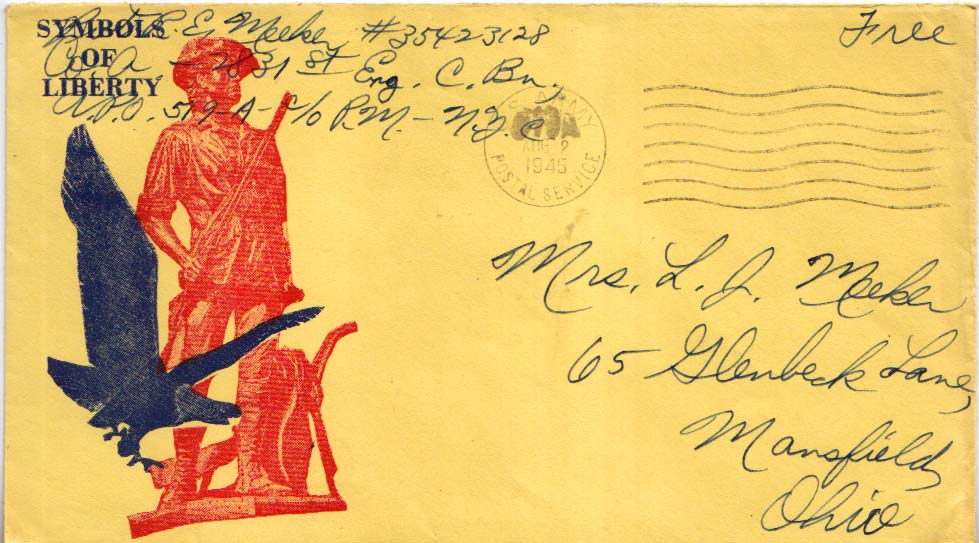 SYMBOLS
OF
LIBERTY
R. E. Meeker #35423128
Co. A, – 2831 st Eng. C. Bn.,
A.P.O. 519-A- c/o P.M. – N.Y.C.
Free
U.S. ARMY
AUG 2
1945
POSTAL SERVICE
Mrs. L. J. Meeker
65 Glenbeck Lane,
Mansfield,
Ohio